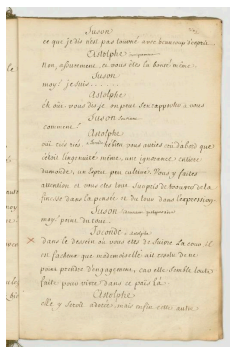 Suson
ce que je dis n'est pas tourné avec beaucoup d'esprit...
Astolphe
non, assurement, et vous êtes la bonté même.
Suson
moy! je suis.......
Astolphe
eh oui. vous dis je. on peut s'en rapporter à vous
Suson
comment?
Astolphe
oui tres tres vous auriés cru d'abord que
c'était l'ingenuité même, une ignorance entiere
du monde, un esprit peu cultivé. vous y faites
attention et vous etes tout surpris de trouver de la
finesse dans la pensée et du tour dans l'expression.
Suson
moy! point du tout.
Joconde à Astolphe
dans le dessein où vous etes de suivre la cour il
est facheux que mademoiselle ait crainte de ne
point prendre d'engagemens, car elle semble toute
faite pour vivre dans ce païs là
Astolphe
elle y seroit adorée, mais enfin cette autre